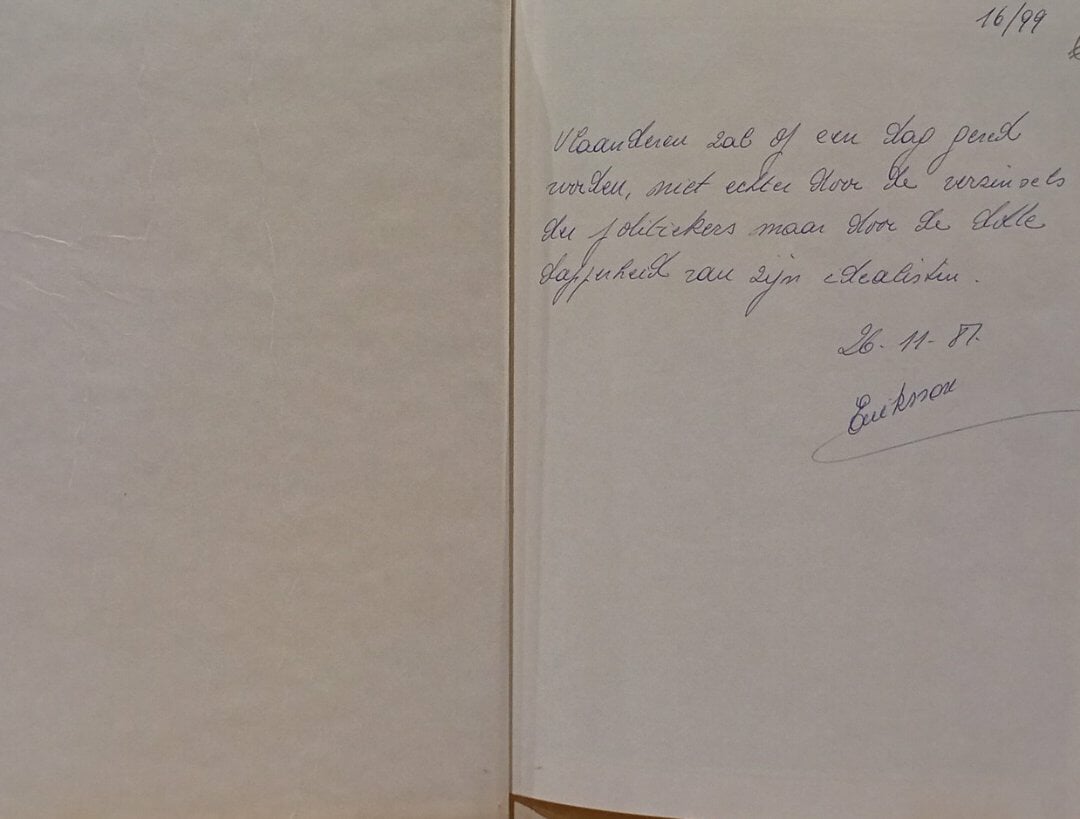 16/99
Vlaanderen zal op een dag gered
worden, niet echter door de verzinsels
der politiekers maar door de dolle
dapperheid van zijn idealisten.
26-11-87.
Eriksson